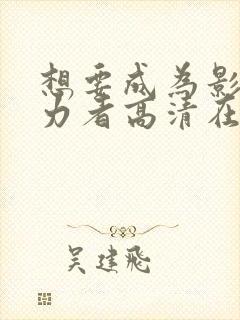 想要成为影
力者高清在
吴建飞